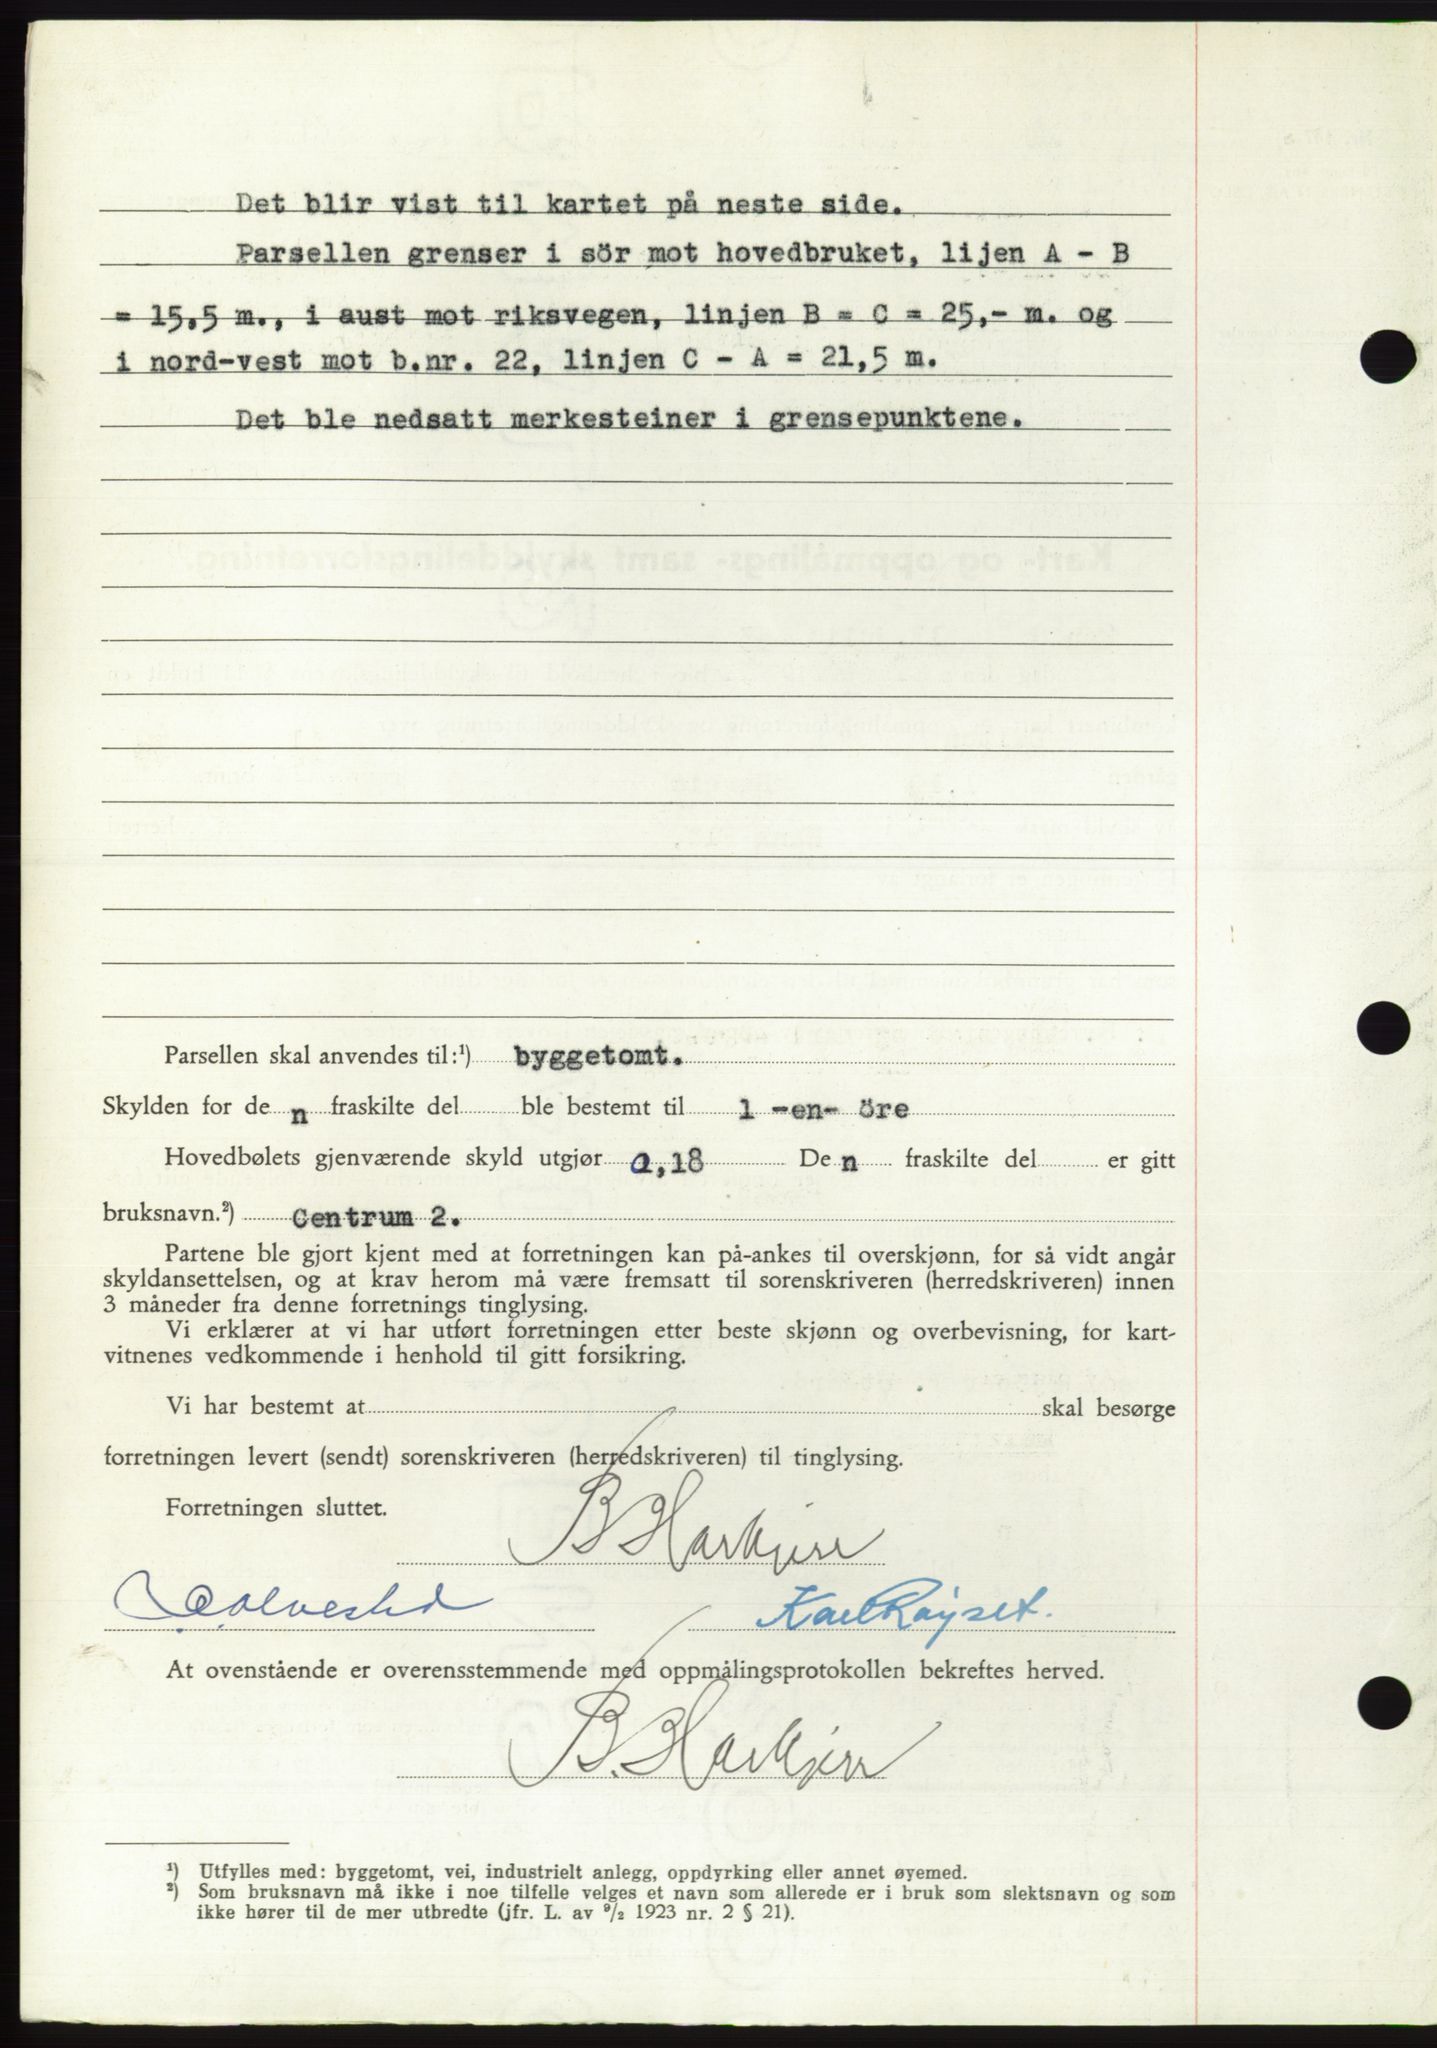 Det blir vist til kartet på neste side.
Parsellen grenser i sör mot hovedbruket, lijen A - B
= 15,5 m., i aust mot riksvegen, linjen B = C = 25,- m. og
i nord-vest mot b.nr. 22, linjen C - A = 21,5 m.
Det ble nedsatt merkesteiner i grensepunktene.
Parsellen skal anvendes til:¹) byggetomt.
Skylden for de n fraskilte del ble bestemt til 1 -en- öre
Hovedbølets gjenværende skyld utgjør 0,18 De n fraskilte del er gitt
bruksnavn.²) Centrum 2.
Partene ble gjort kjent med at forretningen kan på-ankes til overskjønn, for så vidt angår
skyldansettelsen, og at krav herom må være fremsatt til sorenskriveren (herredskriveren) innen
3 måneder fra denne forretnings tinglysing.
Vi erklærer at vi har utført forretningen etter beste skjønn og overbevisning, for kart-
vitnenes vedkommende i henhold til gitt forsikring.
Vi har bestemt at skal besørge
forretningen levert (sendt) sorenskriveren (herredskriveren) til tinglysing.
Forretningen sluttet.
Karl Røyset.
At ovenstående er overensstemmende med oppmålingsprotokollen bekreftes herved.
¹) Utfylles med: byggetomt, vei, industrielt anlegg, oppdyrking eller annet øyemed.
²) Som bruksnavn må ikke i noe tilfelle velges et navn som allerede er i bruk som slektsnavn og som
ikke hører til de mer utbredte (jfr. L. av ⁹/₂ 1923 nr. 2 § 21).